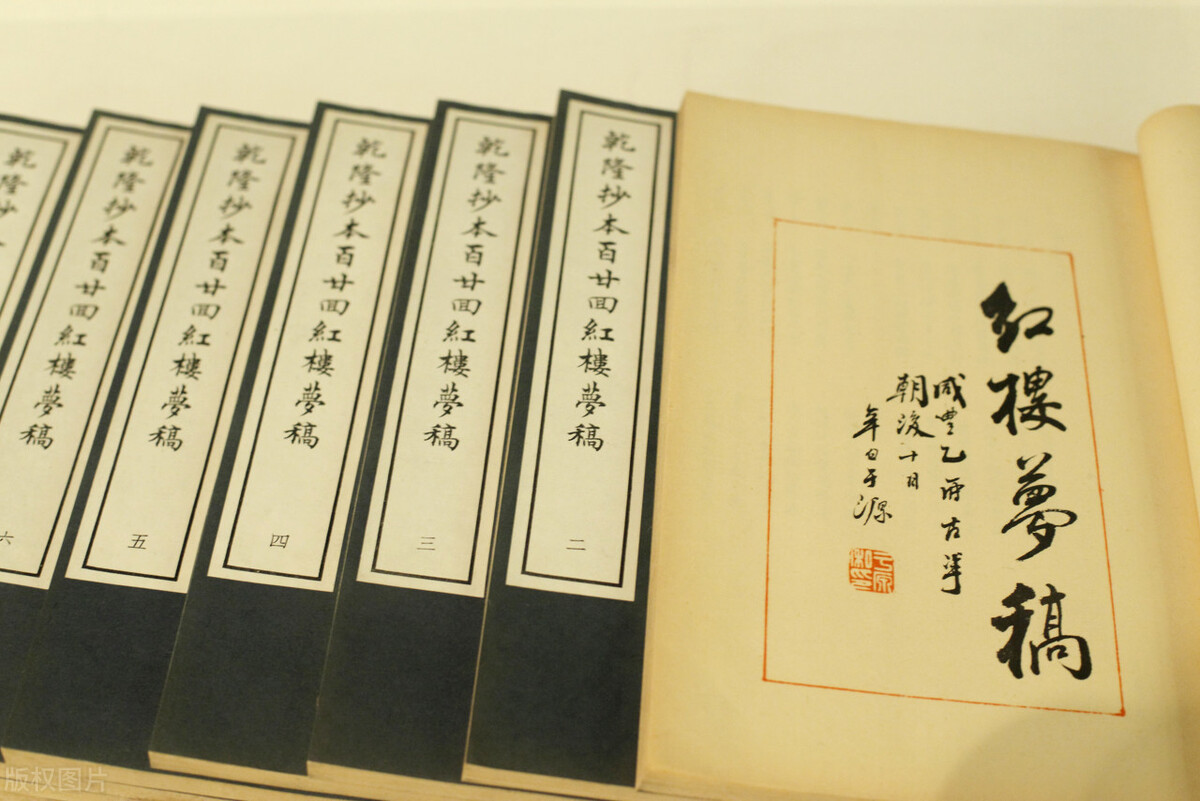 紅樓夢稿
咸豐乙卯古華
朝後十日
辛伯于源
乾隆抄本百廿回紅樓夢稿
二
乾隆抄本百廿回紅樓夢稿
三
乾隆抄本百廿回紅樓夢稿
四
乾隆抄本百廿回紅樓夢稿
五
乾隆抄本百廿回紅樓夢稿
乾隆抄
六
版权图片